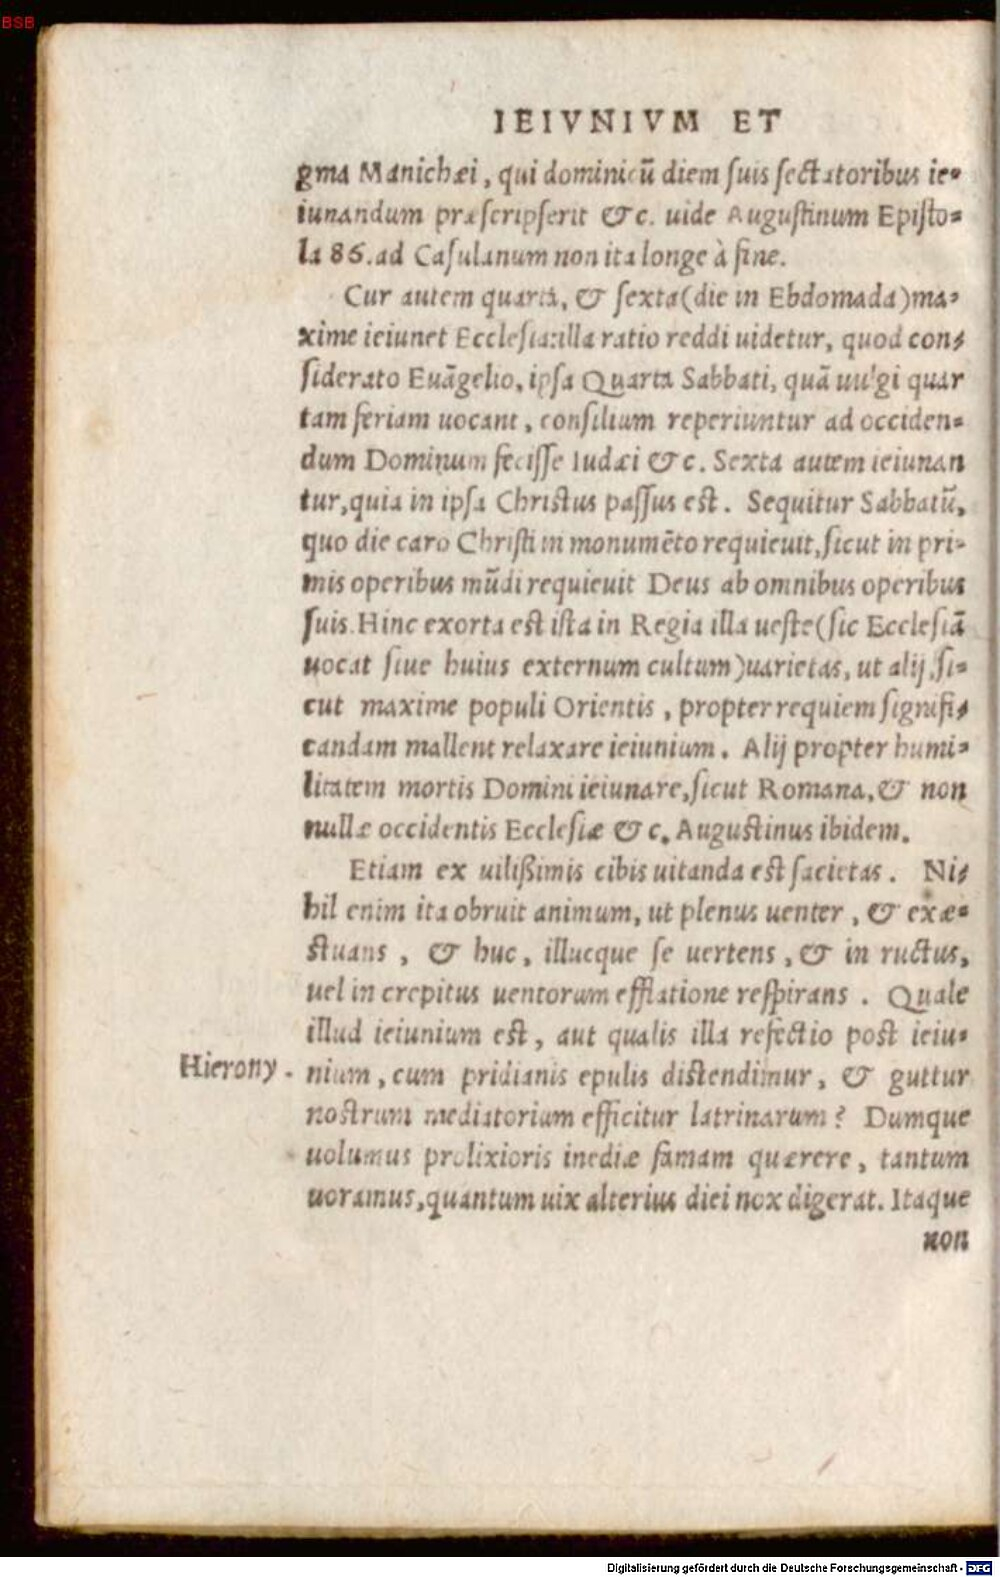 BSB
IEIVNIVM ET
gma Manichæi, qui dominicū diem ſuis ſectatoribus ie-
iunandum præſcripſerit &c. uide Auguſtinum Epiſto-
la 86. ad Caſulanum non ita longe à fine.
Cur autem quarta, & ſexta (die in Ebdomada) ma-
xime ieiunet Eccleſia: illa ratio reddi uidetur, quod con-
ſiderato Euāgelio, ipſa Quarta Sabbati, quā uulgi quar
tam feriam uocant, conſilium reperiuntur ad occiden-
dum Dominum feciſſe Iudæi &c. Sexta autem ieiunan
tur, quia in ipſa Chriſtus paſſus eſt. Sequitur Sabbatū,
quo die caro Chriſti in monumēto requieuit, ſicut in pri-
mis operibus mūdi requieuit Deus ab omnibus operibus
ſuis. Hinc exorta eſt iſta in Regia illa ueſte (ſic Eccleſiā
uocat ſiue huius externum cultum) uarietas, ut alij, ſi-
cut maxime populi Orientis, propter requiem ſignifi-
candam mallent relaxare ieiunium. Alij propter humi-
litatem mortis Domini ieiunare, ſicut Romana, & non
nullæ occidentis Eccleſiæ &c. Auguſtinus ibidem.
Etiam ex uilißimis cibis uitanda eſt ſacietas. Ni-
hil enim ita obruit animum, ut plenus uenter, & exæ-
ſtuans, & huc, illucque ſe uertens, & in ructus,
uel in crepitus uentorum efflatione reſpirans. Quale
illud ieiunium eſt, aut qualis illa refectio poſt ieiu-
Hierony. nium, cum pridianis epulis diſtendimur, & guttur
noſtrum mediatorium efficitur latrinarum? Dumque
uolumus prolixioris inediæ famam quærere, tantum
uoramus, quantum uix alterius diei nox digerat. Itaque
non
Digitalisierung gefördert durch die Deutsche Forschungsgemeinschaft - DFG